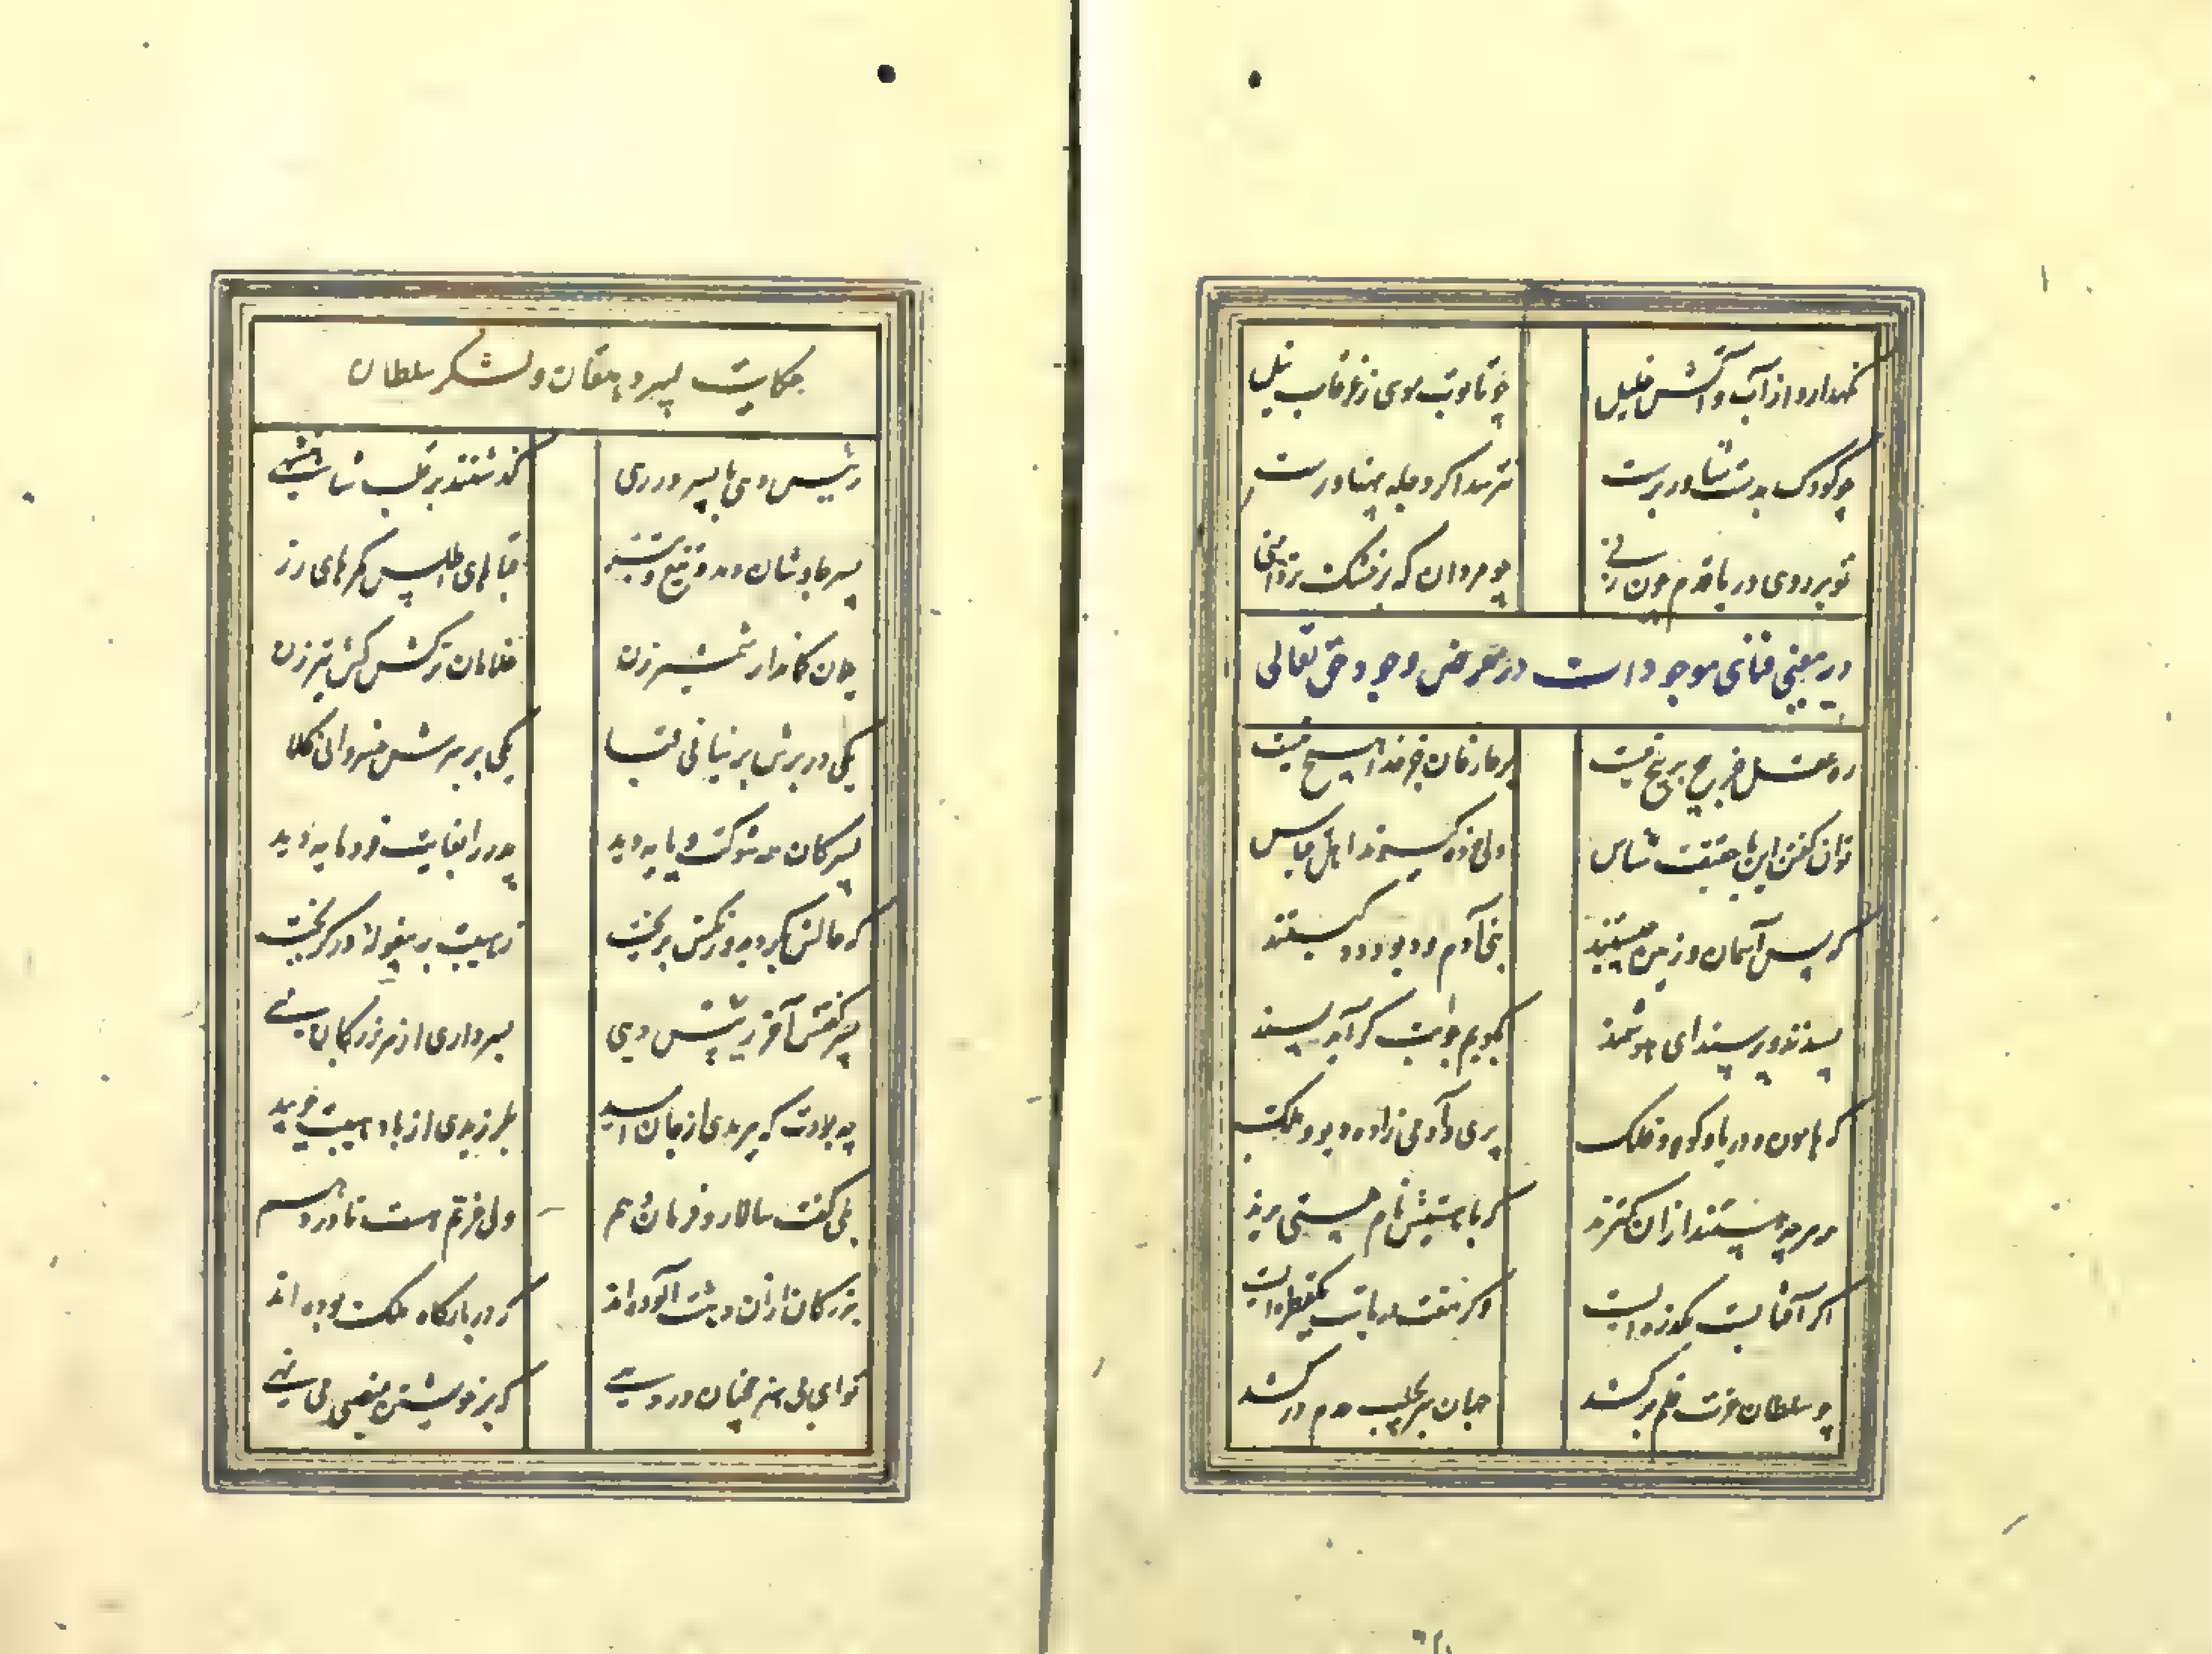 نگهدارد از آب و آتش خلیل چو تابوت موسی ز غرقاب نیل
چو کودک بدست شناور برست نترسد اگر دجله پهناورست
تو بر روی دریا قدم چون زنی چو مردان که بر خشک تر دامنی
در معنی فنای موجودات در معرض وجود حق تعالی
ره عقل جز پیچ بر پیچ نیست بر عارفان جز خدا هیچ نیست
توان گفتن این با حقیقت شناس ولی خرده گیرند اهل قیاس
که پس آسمان و زمین چیستند بنی آدم و دیو و دد کیستند
پسندیده پرسیدی ای هوشمند بگویم جوابت گر آید پسند
که هامون و دریا و کوه و فلک پری و آدمی زاده و دیو و ملک
همه هر چه هستند از آن کمترند که با هستیش نام هستی برند
اگر آفتابست یکذره نیست وگر هفت دریاست یکقطره نیست
چو سلطان عزت علم برکشد جهان سر بجیب عدم درکشد
حکایت پسر دهقان و لشکر سلطان
رئیس دهی با پسر در رهی گذشتند بر قلب شاهنشهی
پسر چاوشان دید و تیغ و تبر قباهای اطلس کمرهای زر
یلان کماندار شمشیر زن غلامان ترکش کش تیر زن
یکی در برش پرنیانی قبا یکی بر سرش خسروانی کلا
پسر کان همه شوکت و پایه دید پدر را بغایت فرومایه دید
که حالش بگردید و رنگش بریخت ز هیبت به پیغوله در گریخت
پسر گفتش آخر رئیس دهی بسرداری از سر بزرگان مهی
چه بودت که ببریدی از جان امید بلرزیدی از باد هیبت چو بید
بلی گفت سالار و فرماندهم ولی عزتم هست تا در دهم
بزرگان از آن دهشت آلوده اند که در بارگاه ملک بوده اند
تو ای بی خبر همچنان در دهی که بر خویشتن منصبی می نهی